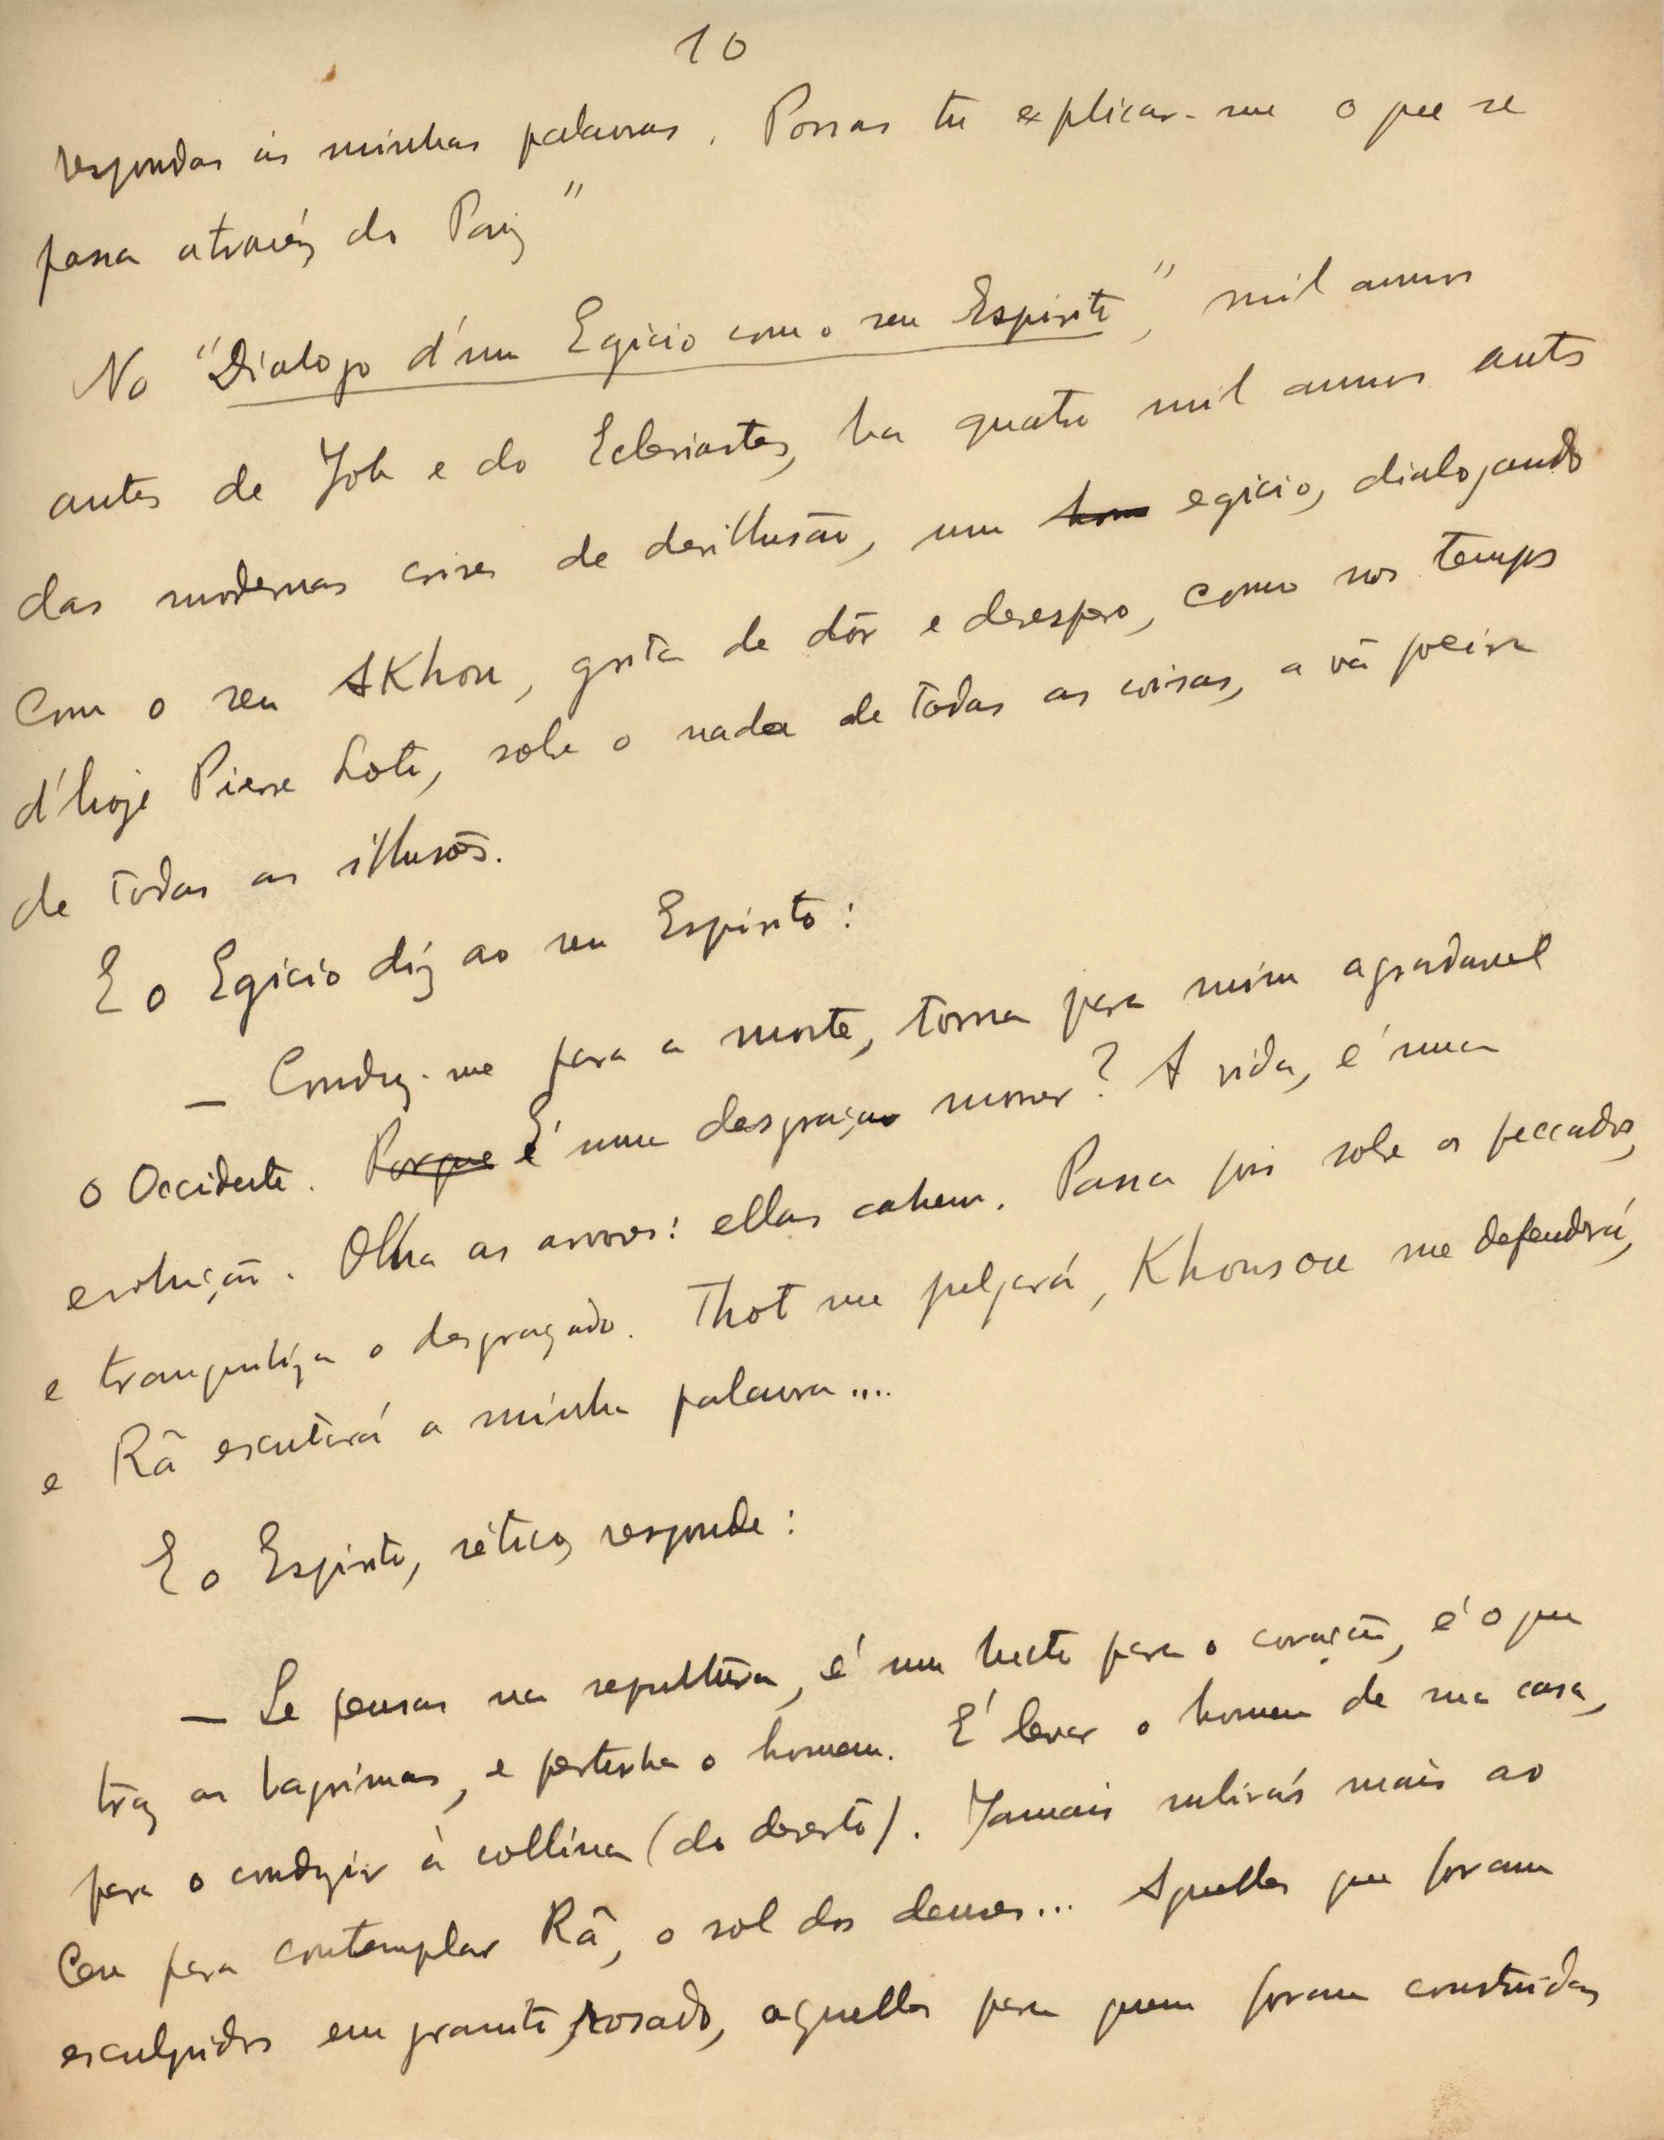 10
respondas ás minhas palavras. Possas tu explicar-me o que se
passa através do Paiz"
No "Dialogo d'um Egicio com o seu Espirito", mil annos
antes de Job e do Eclesiastes, ha quatro mil annos antes
das modernas crises de desillusão, um hom egicio, dialogando
com o seu AKhou, grita de dôr e desespero, como nos tempos
d'hoje Pierre Loti, sobre o nada de todas as coisas, a vã poeira
de todas as illusões.
E o Egicio diz ao seu Espirito:
— Conduz-me para a morte, torna para mim agradavel
o Occidente. Porque É uma desgraça morrer? A vida, é uma
evolução. Olha as arvores: ellas cahem. Passa pois sobre os peccados,
e tranquiliza o desgraçado. Thot me julgará, Khonsou me defenderá,
e Râ escutará a minha palavra....
E o Espirito, sético, responde:
— Se pensas na sepultura, é um lucto para o coração, é o que
traz as lagrimas, e pertuba o homem. É levar o homem de sua casa,
para o conduzir à collina (do deserto). Jamais subirás mais ao
Ceu para contemplar Râ, o sol dos deuses... Aquelles que foram
esculpidos em granito rosado, aquelles para quem foram construidas